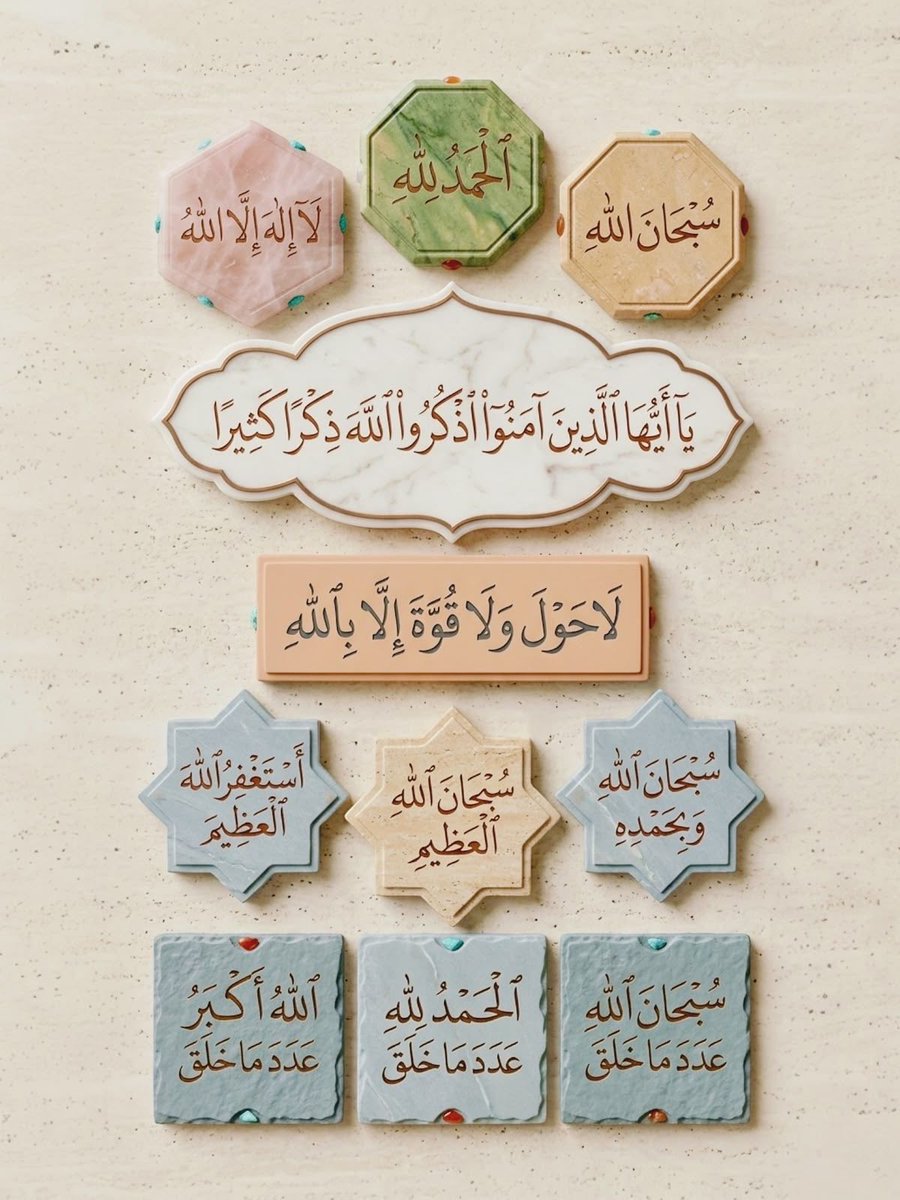 سُبْحَانَ اللهِ
ٱلْحَمْدُ لِلّٰهِ
لَآ إِلٰهَ إِلَّا اللهُ
يَآ أَيُّهَا ٱلَّذِينَ آمَنُوٓاْ ٱذْكُرُواْ ٱللَّهَ ذِكْرًا كَثِيرًا
لَا حَوْلَ وَلَا قُوَّةَ إِلَّا بِٱللهِ
سُبْحَانَ ٱللهِ
وَبِحَمْدِهِ
سُبْحَانَ ٱللهِ
ٱلْعَظِيمِ
أَسْتَغْفِرُ ٱللهَ
ٱلْعَظِيمَ
سُبْحَانَ ٱللهِ
عَدَدَ مَا خَلَقَ
ٱلْحَمْدُ لِلّٰهِ
عَدَدَ مَا خَلَقَ
ٱللهُ أَكْبَرُ
عَدَدَ مَا خَلَقَ